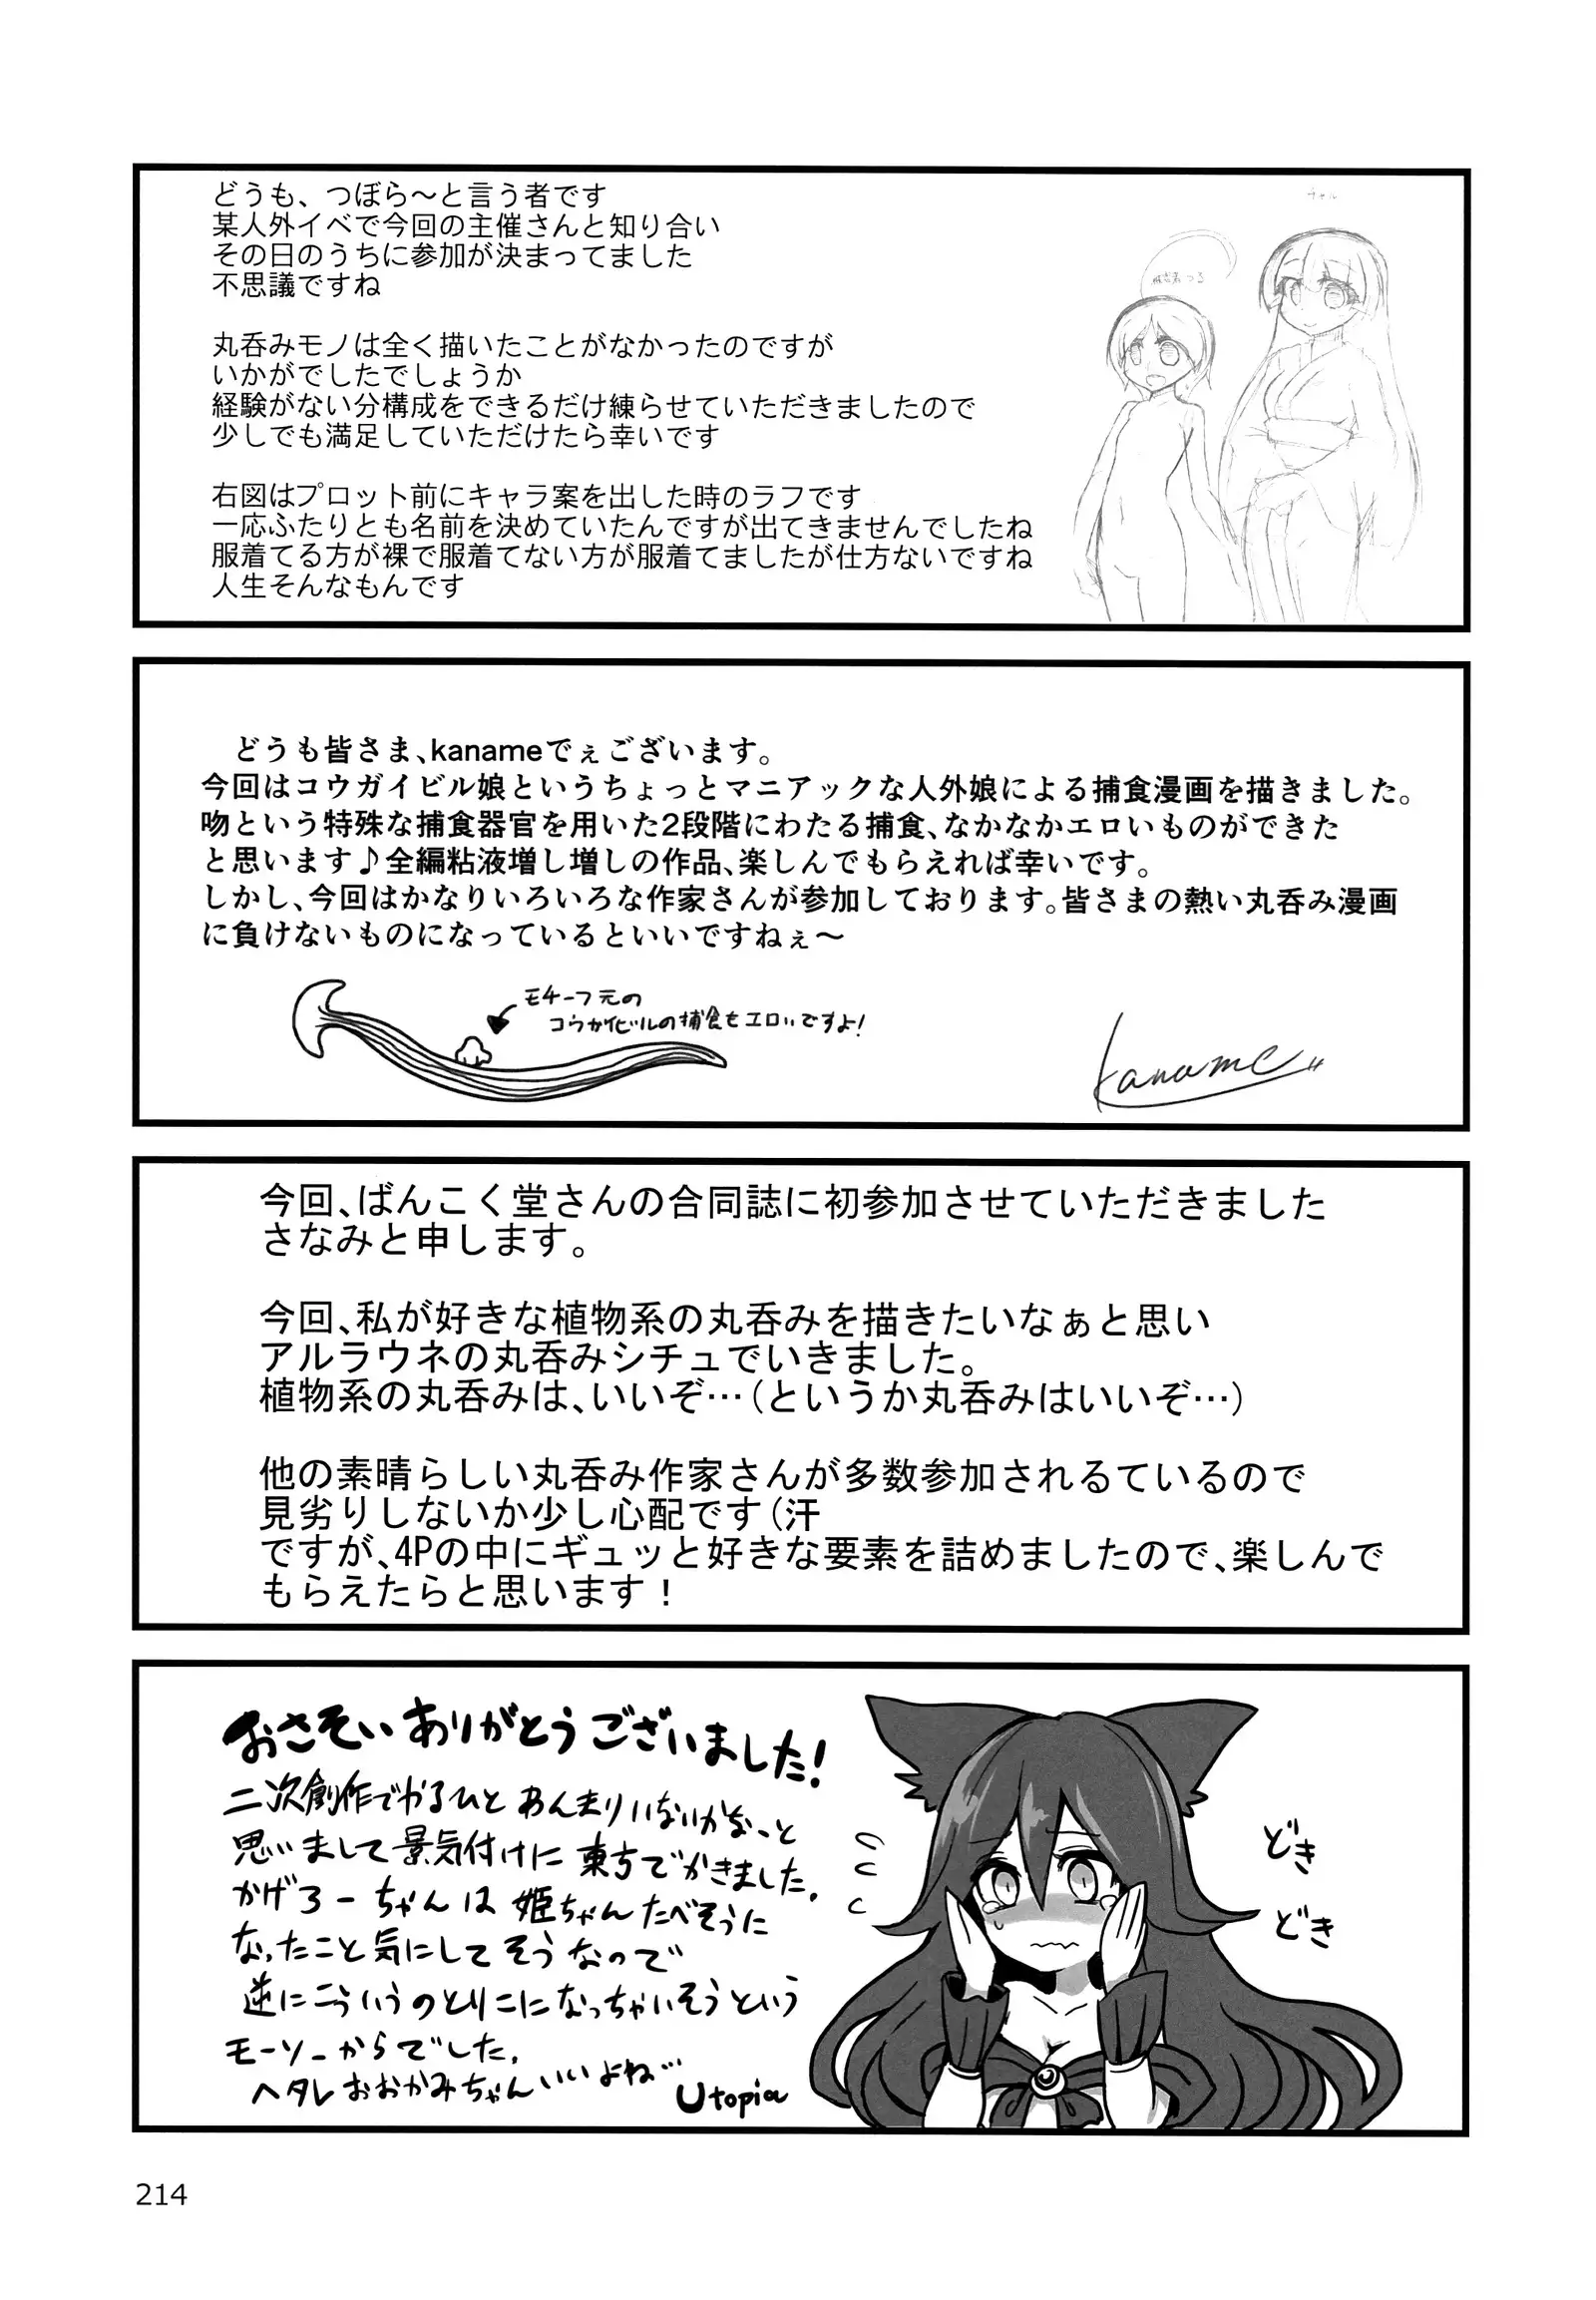 どうも、つぼら～と言う者です
某人外イベで今回の主催さんと知り合い
その日のうちに参加が決まってました
不思議ですね
丸呑みモノは全く描いたことがなかったのですが
いかがでしたでしょうか
経験がない分構成をできるだけ練らせていただきましたので
少しでも満足していただけたら幸いです
右図はプロット前にキャラ案を出した時のラフです
一応ふたりとも名前を決めていたんですが出てきませんでしたね
服着てる方が裸で服着てない方が服着てましたが仕方ないですね
人生そんなもんです
どうも皆さま、kanameでぇございます。
今回はコウガイビル娘というちょっとマニアックな人外娘による捕食漫画を描きました。
吻という特殊な捕食器官を用いた2段階にわたる捕食、なかなかエロいものができた
と思います♪全編粘液増し増しの作品、楽しんでもらえれば幸いです。
しかし、今回はかなりいろいろな作家さんが参加しております。皆さまの熱い丸呑み漫画
に負けないものになっているといいですねぇ～
モチーフ元の
コウガイビルの捕食もエロいですよ!
kaname
今回、ばんこく堂さんの合同誌に初参加させていただきました
さなみと申します。
今回、私が好きな植物系の丸呑みを描きたいなぁと思い
アルラウネの丸呑みシチュでいきました。
植物系の丸呑みは、いいぞ…(というか丸呑みはいいぞ…)
他の素晴らしい丸呑み作家さんが多数参加されるているので
見劣りしないか少し心配です(汗
ですが、4Pの中にギュッと好きな要素を詰めましたので、楽しんで
もらえたらと思います！
おさそいありがとうございました!
二次創作でやるひとあんまりいないかなーっと
思いまして景気付けに東方でかきました.
かげろーちゃんは姫ちゃんたべそうに
なったこと気にしてそうなので
逆にこういうのとりこになっちゃいそうという
モーソーからでした.
ヘタレおおかみちゃんいいよね
Utopia
どき
どき
214